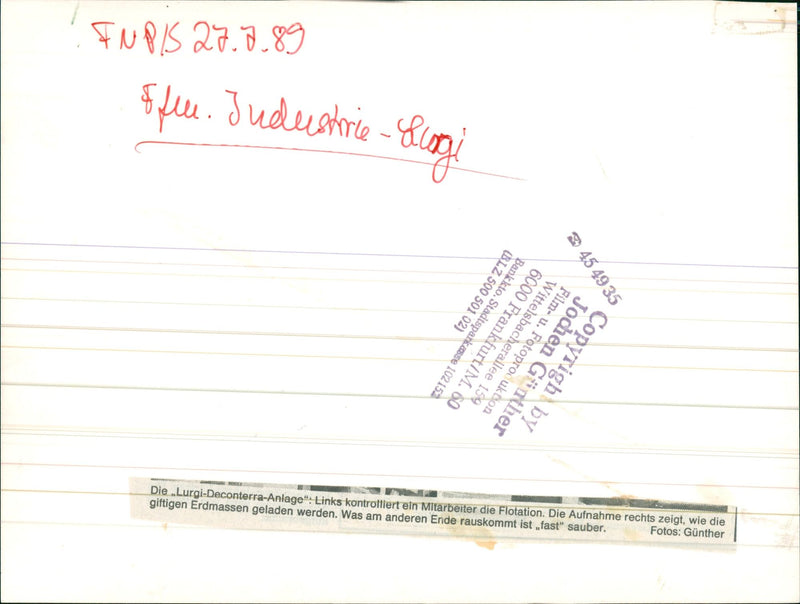 FNP/S 27.7.89
Ffm. Industrie-Lurgi
☎ 45 49 35
Copyright by
Jochen Günther
Film- u. Fotoproduktion
Wittelsbacherallee 159
6000 Frankfurt/M. 60
Bankkto. Stadtsparkasse 102152
(BLZ 500 501 02)
Die „Lurgi-Deconterra-Anlage“: Links kontrolliert ein Mitarbeiter die Flotation. Die Aufnahme rechts zeigt, wie die
giftigen Erdmassen geladen werden. Was am anderen Ende rauskommt ist „fast“ sauber. Fotos: Günther